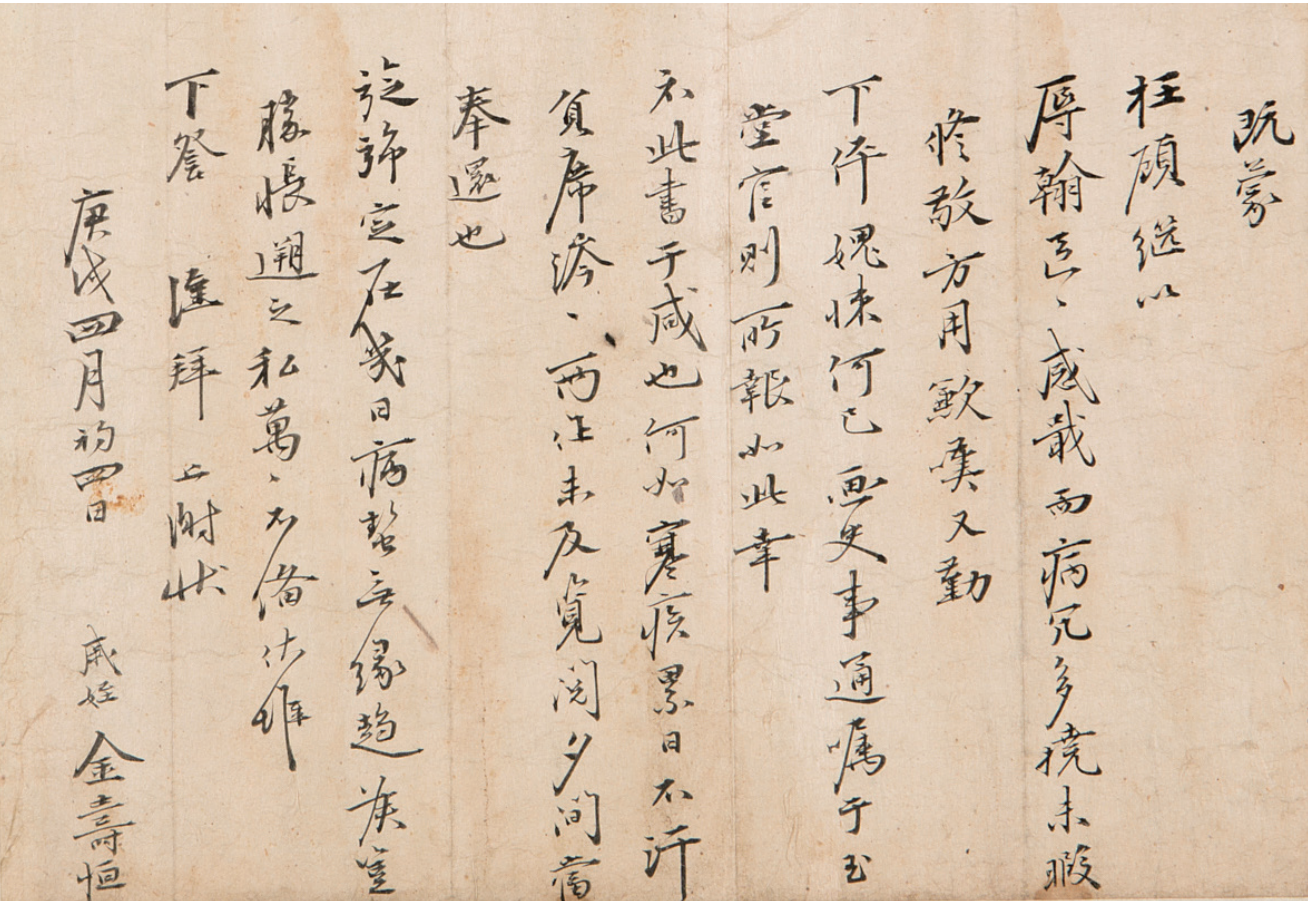 既蒙
枉顧繼以
辱翰區〻感哉而病冗多撓未暇
修敬方用歉嘆又勤
下伻媿悚何已画史事通囑于玉
堂官則所報如此幸
以此書于咸也何如寒疾累日不汗
負席涔〻兩作未及覓閱夕間當
奉還也
旋旆定在幾日病蟄無緣趨候豈
勝悵遡之私萬〻不備伏惟
下詧 謹拜上謝狀
庚戌四月初四日 戚姪 金壽恒